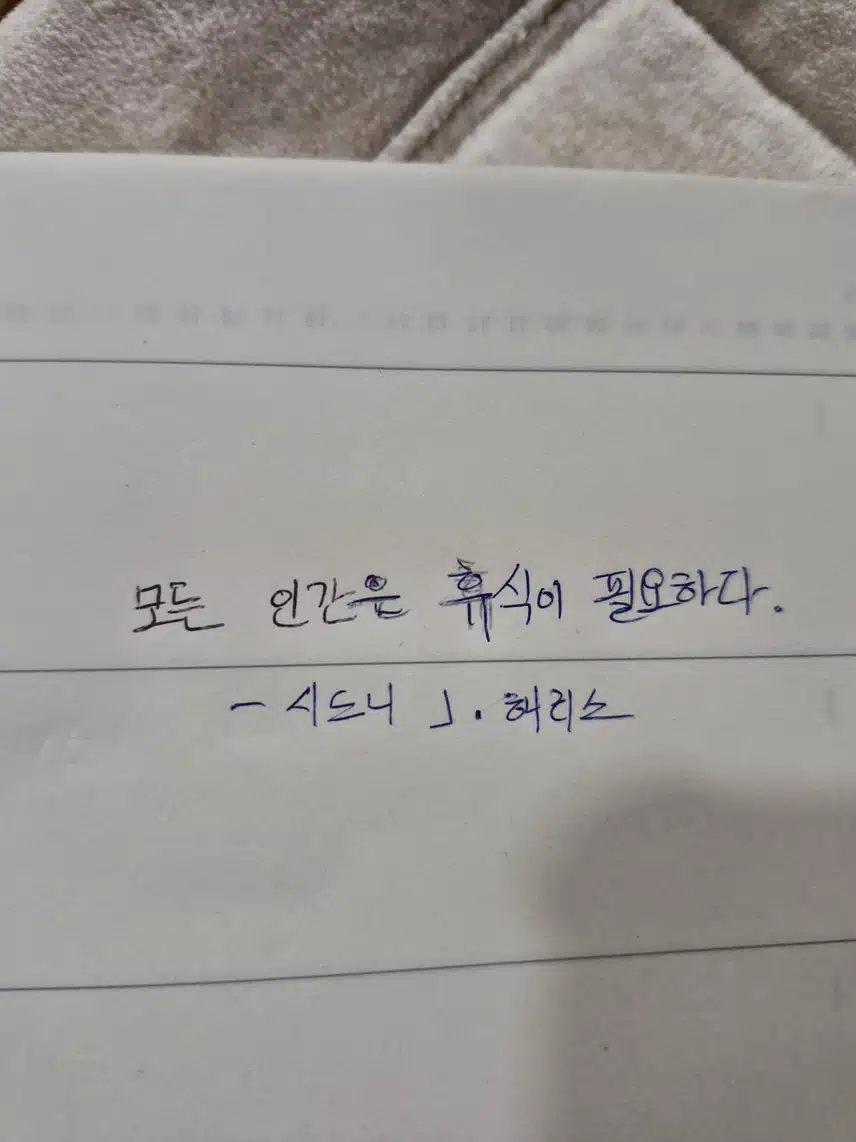 모든 인간은 휴식이 필요하다.
- 시드니 J. 해리스